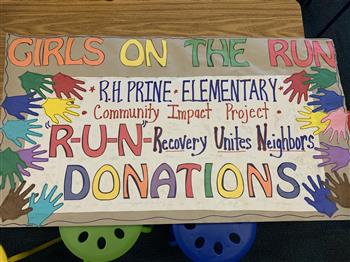 GIRLS ON THE RUN
R.H. PRINE • ELEMENTARY
Community Impact Project •
"R-U-N" - Recovery Unites Neighbors
DONATIONS